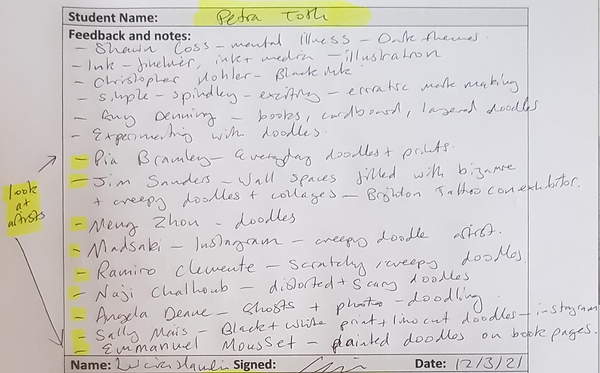 Student Name: Petra Toth
Feedback and notes:
- Shawn Coss - mental illness - Dark themes.
- Ink - fineliner, ink + media - illustration
- Christopher Mohler - Black ink
- Simple - spindley - exciting - erratic mark making
- Amy Denning - books, cardboard, layered doodles
- Experimenting with doodles.
look at artists
- Pia Bramley - Everyday doodles + prints.
- Jim Sanders - Wall spaces filled with bizarre
+ creepy doodles + collages - Brighton Tattoo con exhibitor.
- Meng Zhou - doodles
- Madsaki - Instagram - creepy doodle artist.
- Ramiro Clemente - Scratchy, creepy doodles.
- Naji Chalhoub - distorted + scary doodles
- Angela Deane - Ghosts + photos - doodling
- Sally Mais - Black + white print + lino cut doodles - instagram
- Emmanuel Mousset - painted doodles on book pages.
Name: Signed: Date: 12/3/21